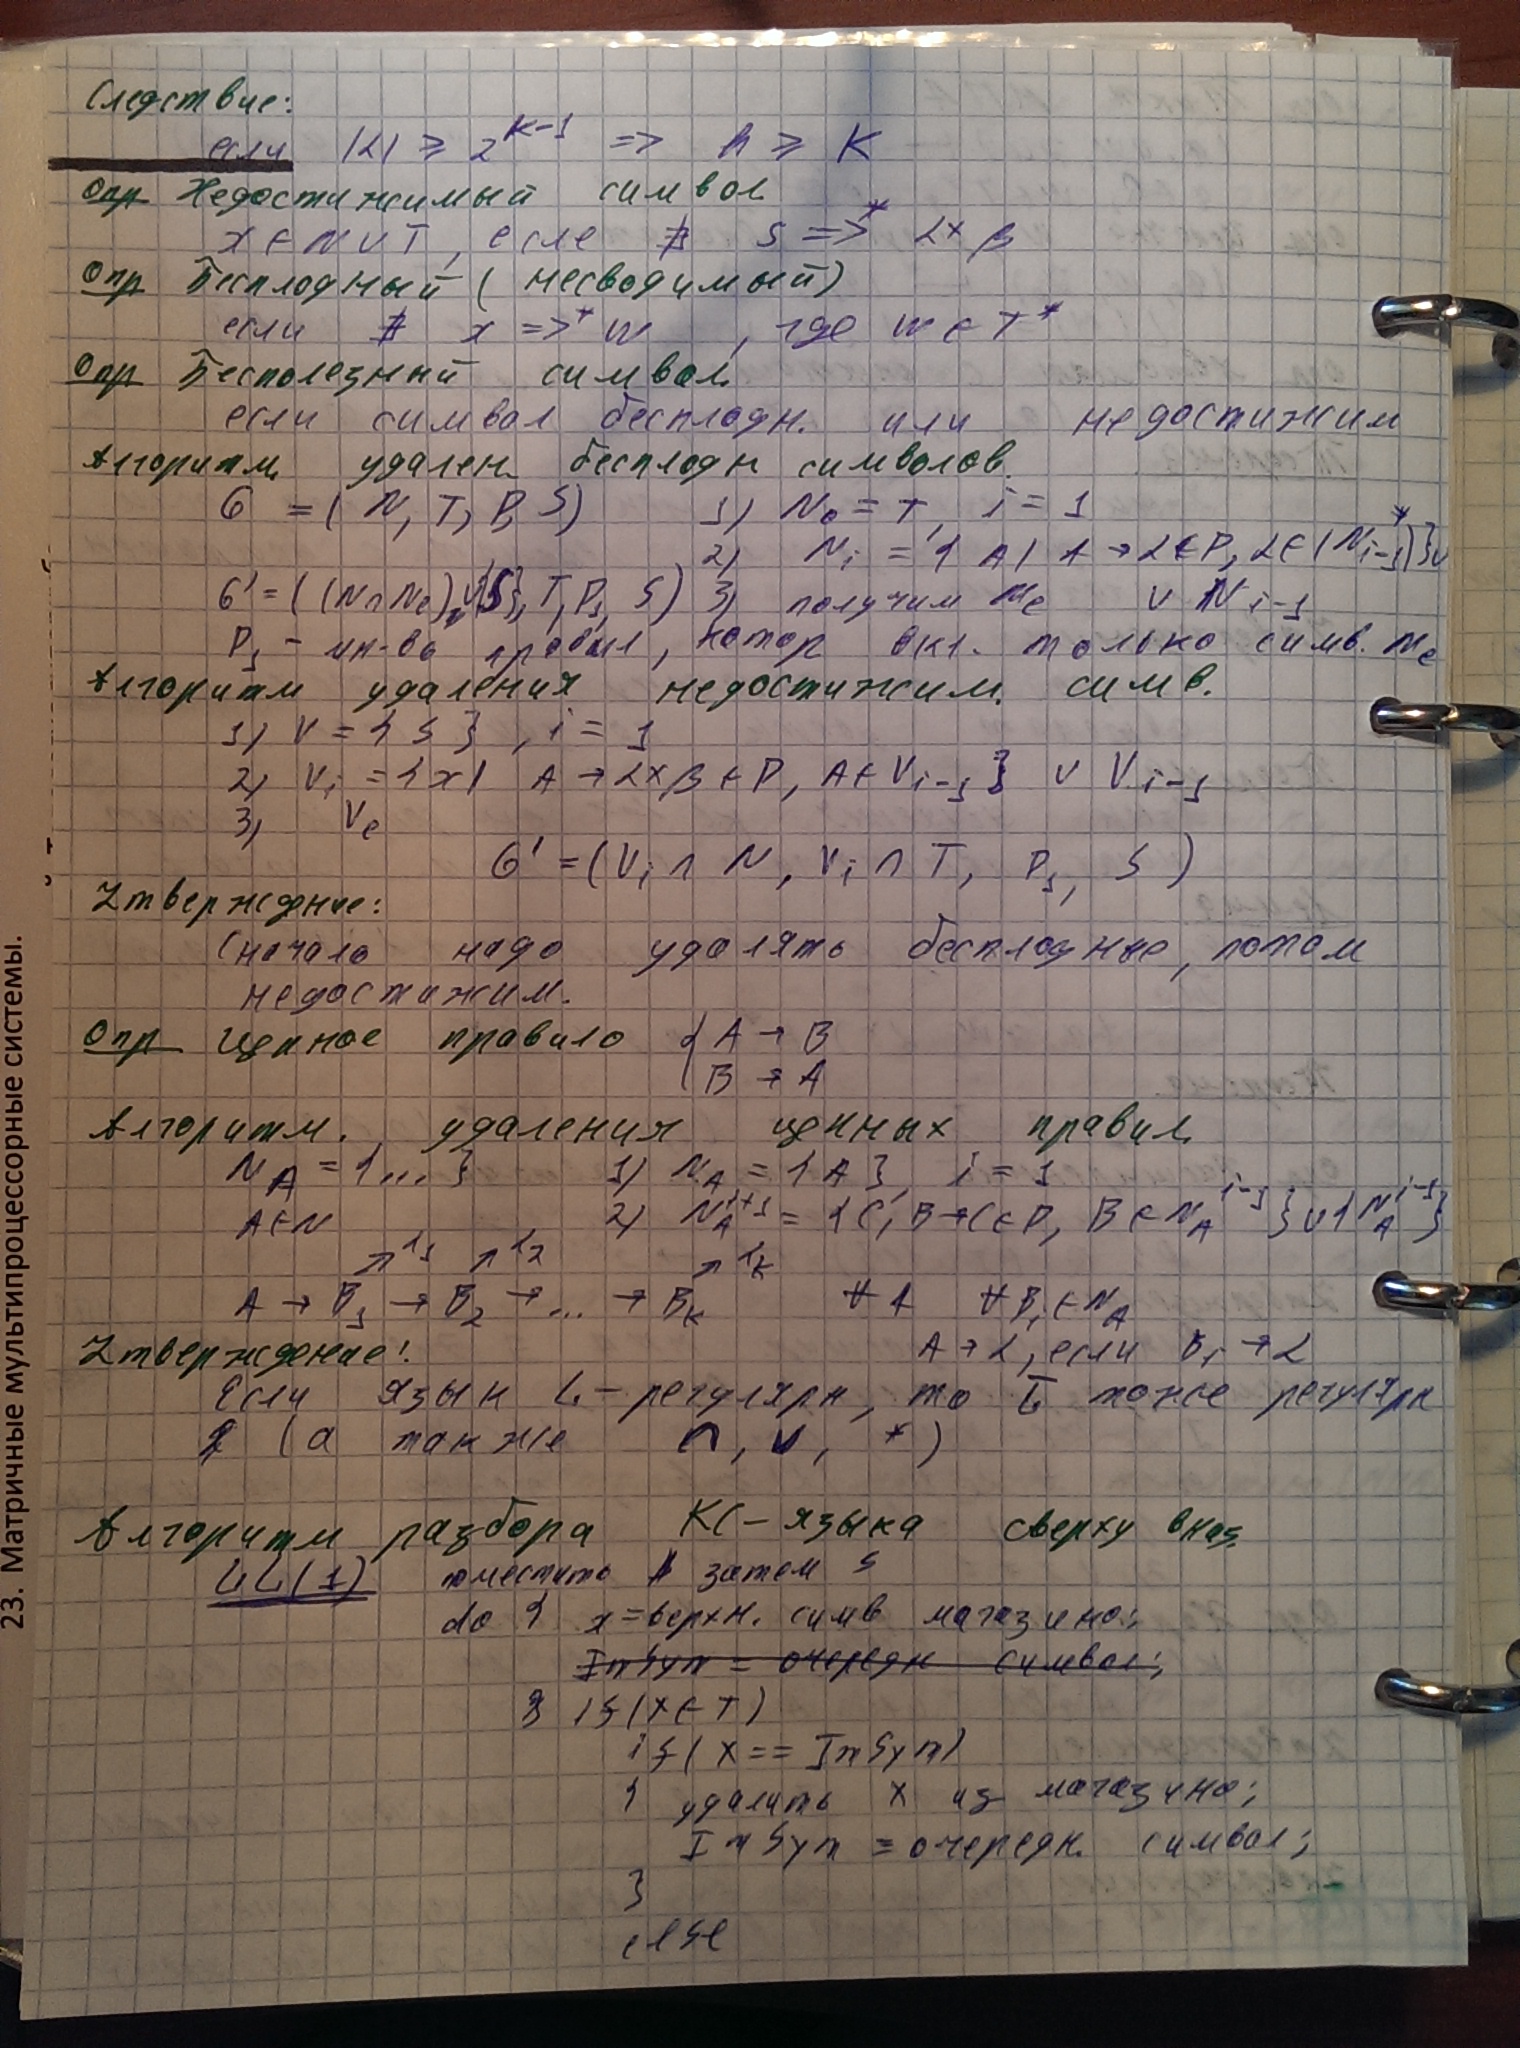 Следствие:
если |α| ≥ 2^(k-1) => h ≥ K
Опр Недостижимый символ
x ∈ N ∪ T, если ∄ S =>* αxβ
Опр Бесплодный (несводимый)
если ∄ x =>* w, где w ∈ T*
Опр Бесполезный символ
если символ бесплодн. или недостижим
Алгоритм удален. бесплодн символов.
G = (N, T, P, S) 1) N₀ = T, i = 1
2) Nᵢ = {A | A → α ∈ P, α ∈ (Nᵢ₋₁)*} ∪
G' = ((N ∩ Nₑ) ∪ {S}, T, P₁, S) 3) получим Nₑ ∪ Nᵢ₋₁
P₁ - мн-во правил, котор вкл. только симв. Nₑ
Алгоритм удаления недостижим. симв.
1) V = {S}, i = 1
2) Vᵢ = {x | A → αxβ ∈ P, A ∈ Vᵢ₋₁} ∪ Vᵢ₋₁
3) Vₑ
G' = (Vᵢ ∩ N, Vᵢ ∩ T, P₁, S)
Утверждение:
Сначало надо удалять бесплодные, потом
недостижим.
Опр Цепное правило { A → B
B → A
Алгоритм. удаления цепных правил
N_A = {...} 1) N_A = {A}, i = 1
A ∈ N 2) N_A^(i+1) = {C, B → C ∈ P, B ∈ N_A^(i-1)} ∪ {N_A^(i-1)}
↗ α₁ ↗ α₂ ↗ αₖ
A → B₁ → B₂ → ... → Bₖ ∀A ∀Bᵢ ∈ N_A
Утверждение: A → α, если Bᵢ → α
Если язык L - регулярн, то L̅ тоже регулярн
(а также ∩, ∪, *)
Алгоритм разбора КС-языка сверху вниз
LL(1) поместить затем S
do { x = верхн. симв магазино;
InSym = очередн символ;
} if (X ∈ T)
if (X == InSym)
{ удалить X из магазино;
InSym = очередн. символ;
}
else
23. Матричные мультипроцессорные системы.